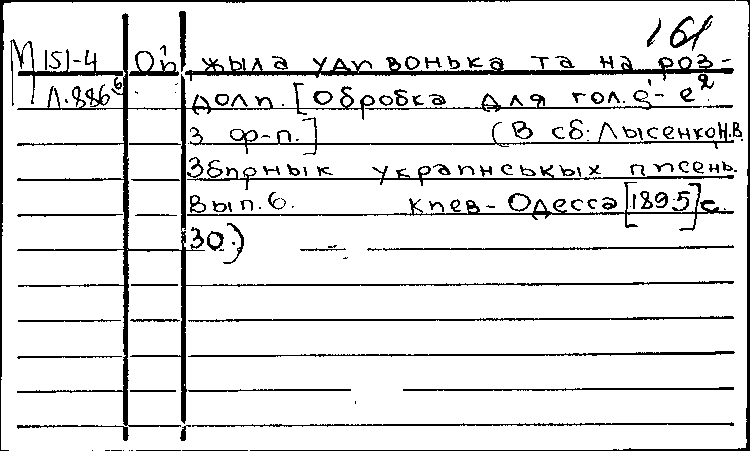 161
М 151-4 Оп жыла удпвонька та на роз-
Л.886⁶ долп. [Обробка для гол. g'- e².
з ф-п.] (В сб: Лысенко Н.В.
Збпрнык украпнськых ппсень.
Вып.6. Кпев-Одесса [1895] с.
30.)